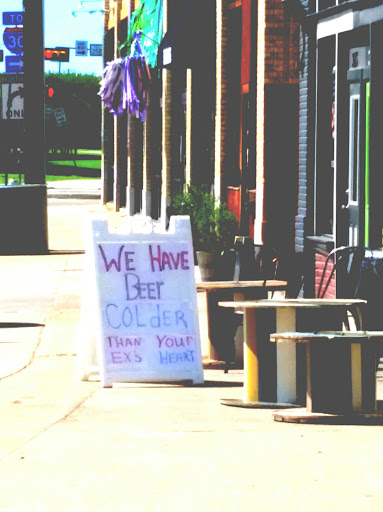 TO
30
We Have
Beer
Colder
Than Your
Ex's Heart